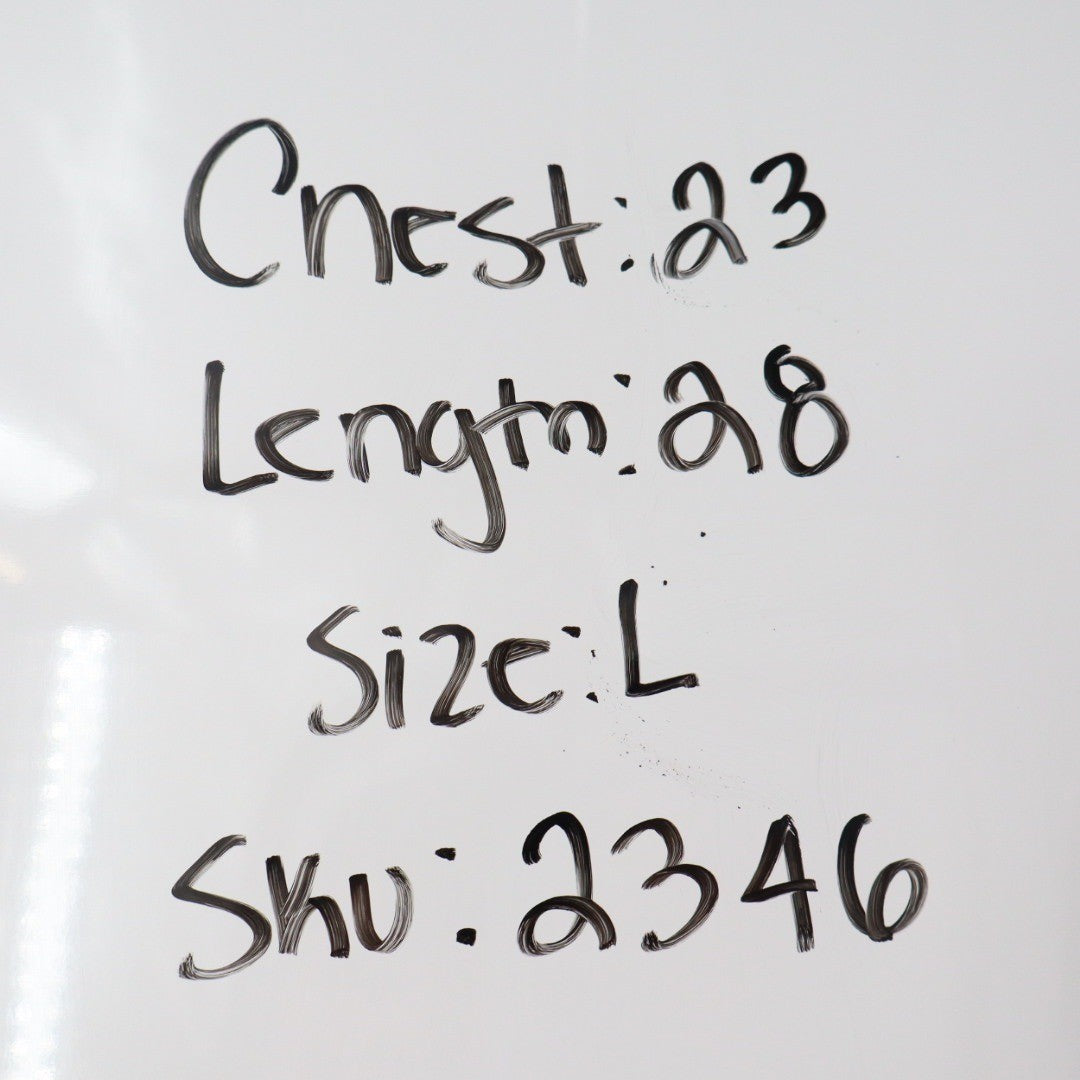 Chest: 23
Length: 28
Size: L
Sku: 2346